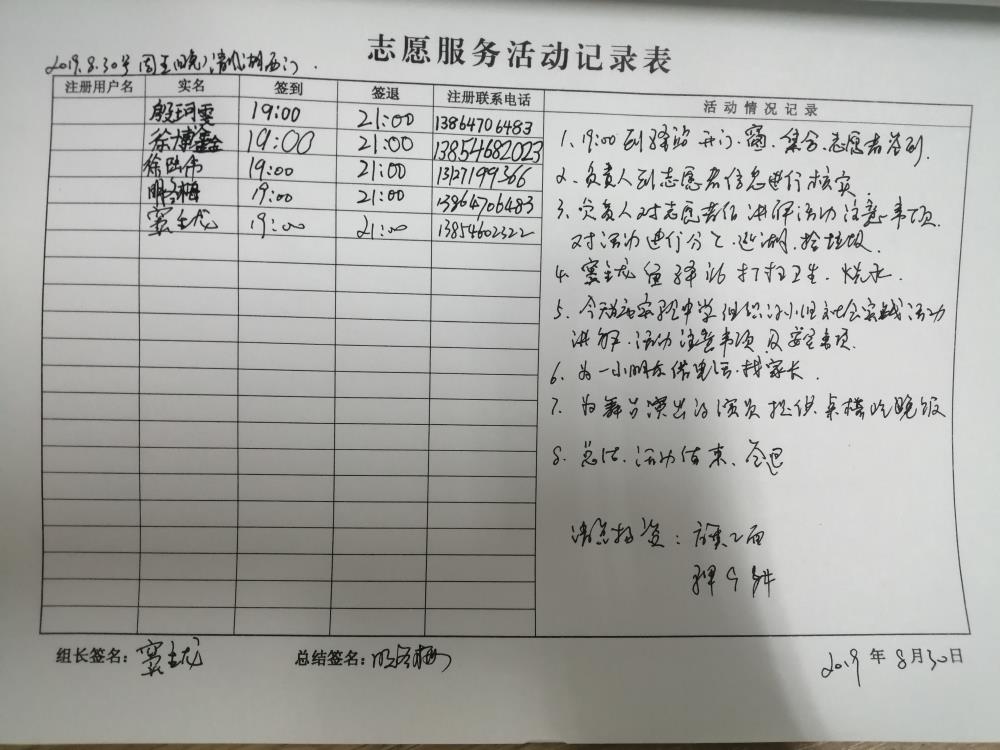 志愿服务活动记录表
2019.8.30号 周五(晚)清风湖西门.
注册用户名 实名 签到 签退 注册联系电话 活动情况记录
殷珂雯 19:00 21:00 13864706483
徐博鑫 19:00 21:00 13854682023
徐 伟 19:00 21:00 13127199366
明 梅 19:00 21:00 13864706483
窦主龙 19:00 21:00 13854602322
1、19:00到驿站 开门、窗、集合、志愿者签到.
2、负责人到志愿者信息进行核实.
3、负责人对志愿者们讲解活动注意事项.
对活动进行分工、巡湖、捡垃圾.
4、窦主龙 值驿站 打扫卫生、烧水.
5、今天 实验中学组织的小组社会实践活动
讲解、活动注意事项及安全事项.
6、为一小朋友借电话、找家长.
7、为舞台演出的演员提供桌椅吃晚饭
8、总结、活动结束、签退
消息物资:旗2面
9件
组长签名: 窦主龙 总结签名: 明 梅
2019年8月30日